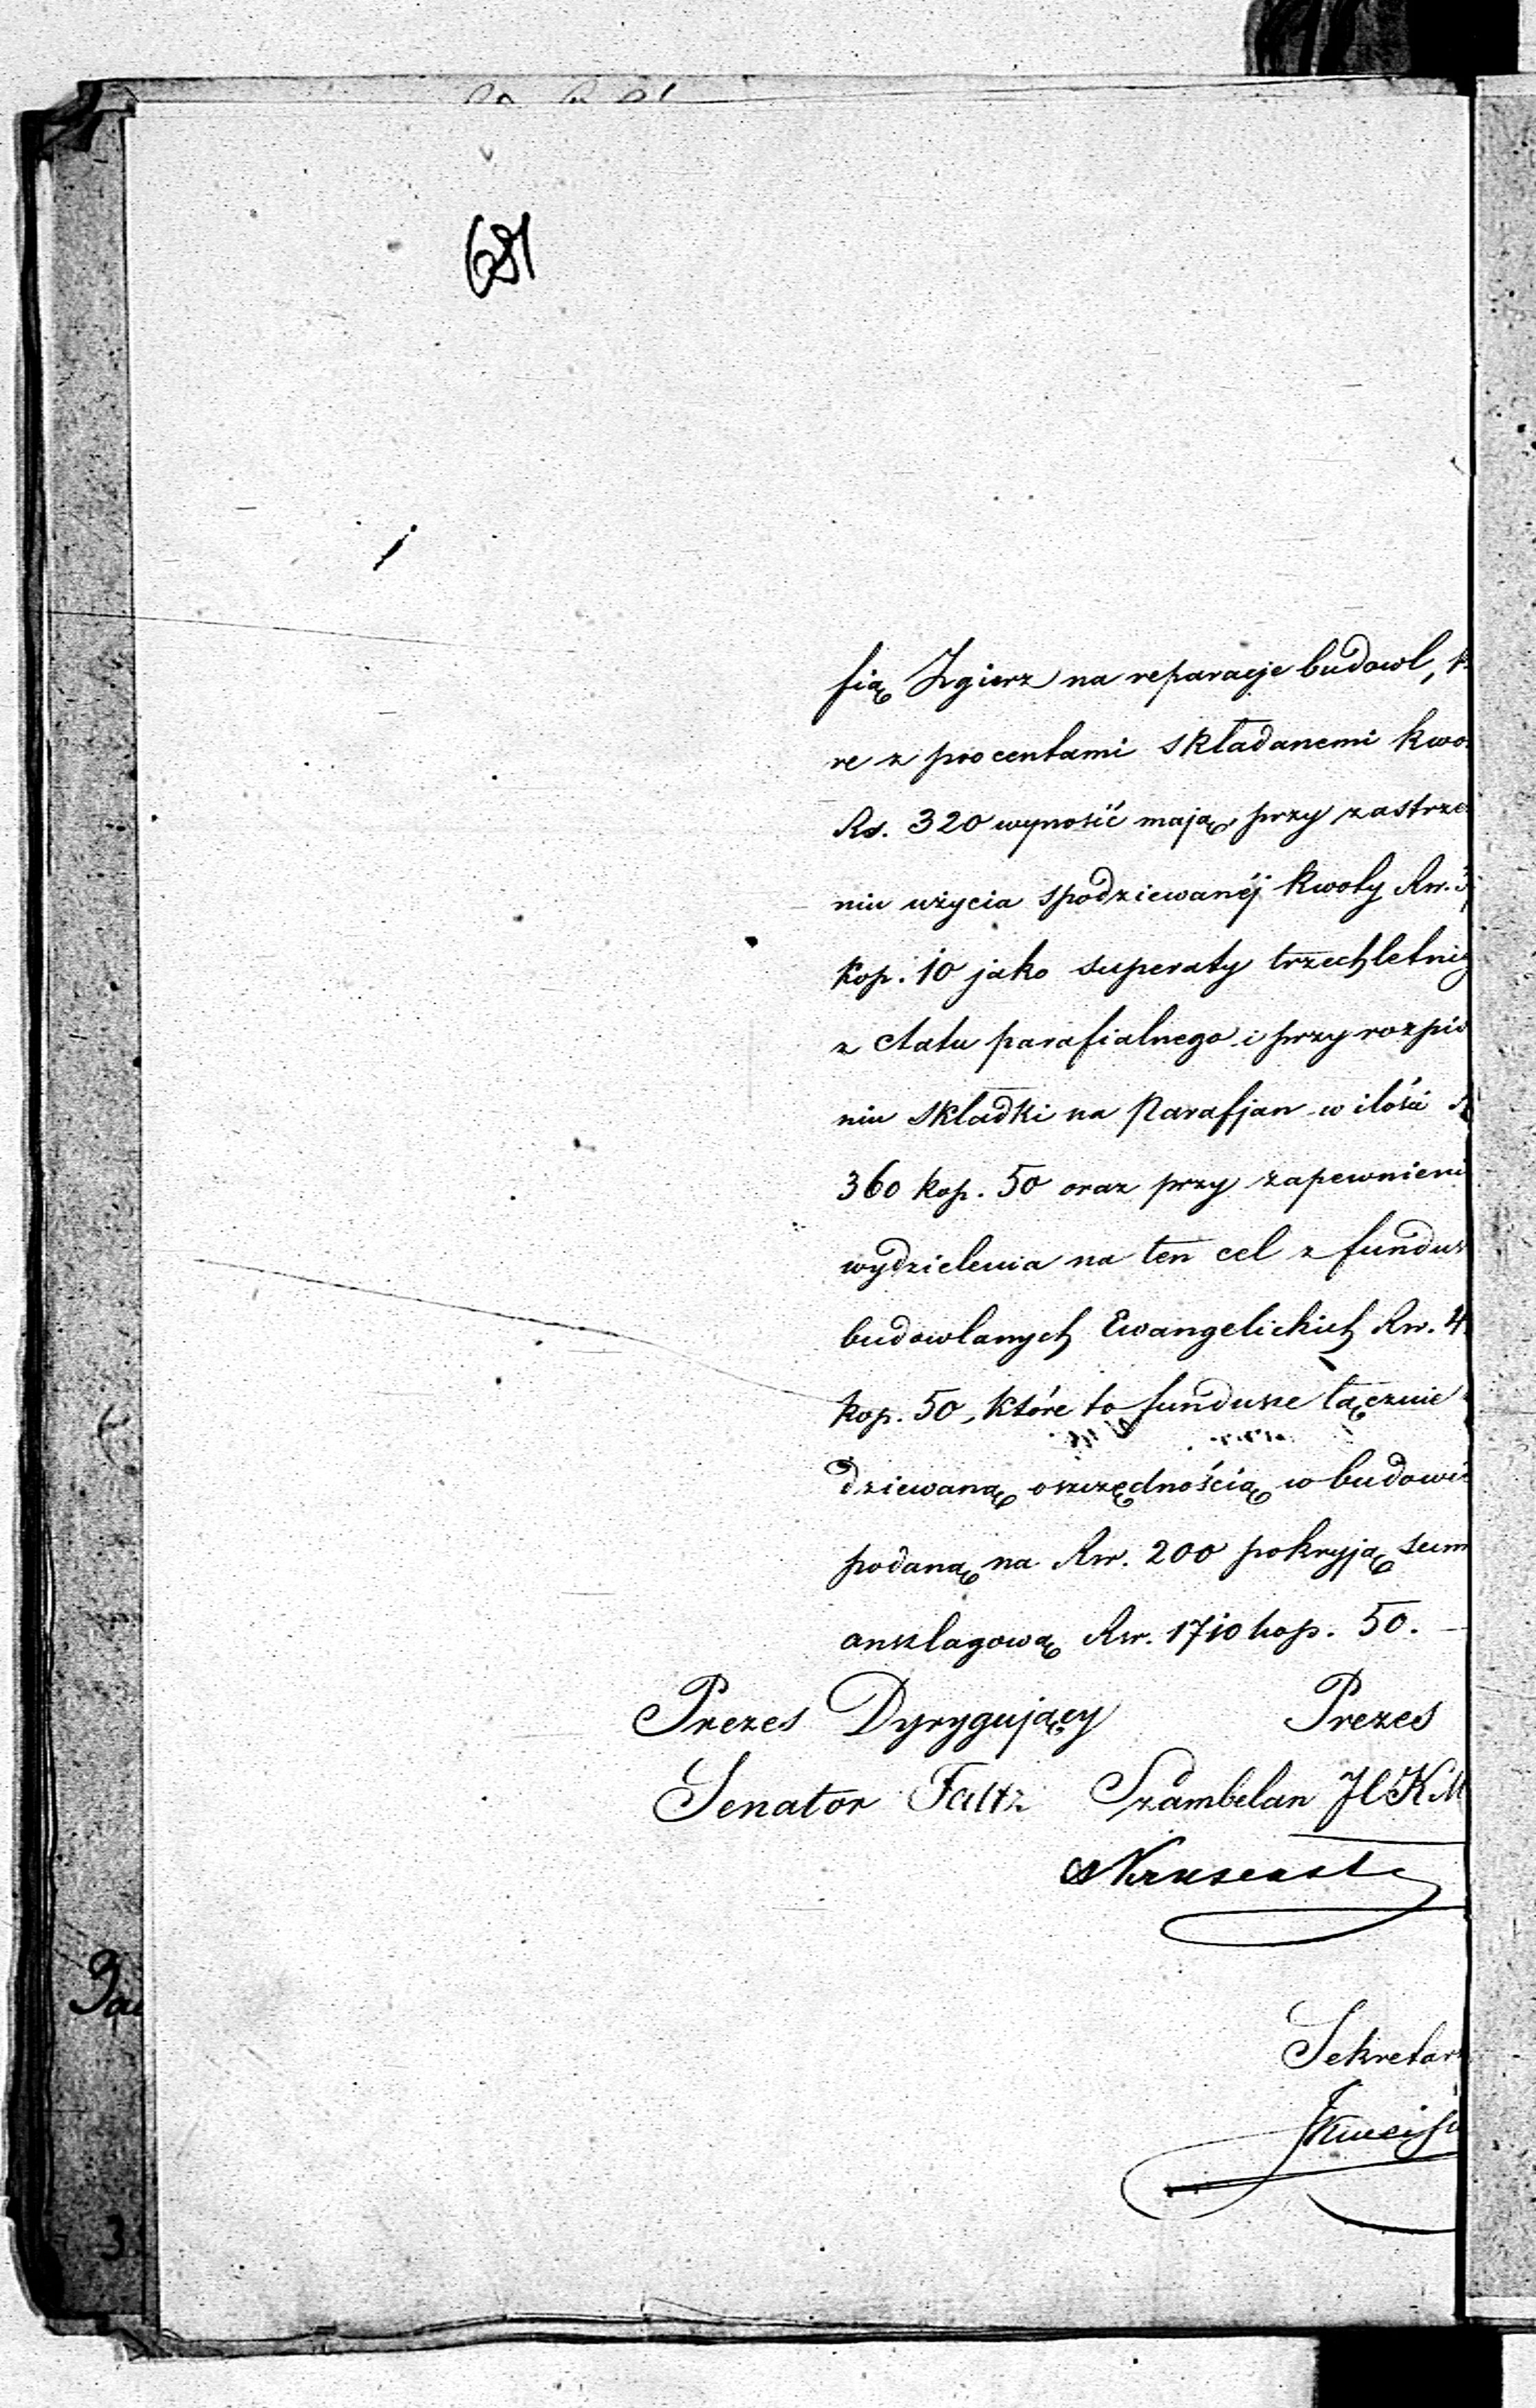 681
fią Zgierz na reparacje budowl,
re z procentami składanemi kwo
Rs. 320 wynosić mają, przy zastrze
niu użycia spodziewanéj kwoty Rsr.
kop. 10 jako superaty trzechletniéj
z etatu parafialnego i przy rozpis
niu składki na Parafjan w ilości
360 kop. 50 oraz przy zapewnieni
wydzielenia na ten cel z fundus
budowlanych Ewangelickich Rsr. 4
kop. 50, które to fundusze łącznie
dziewaną oszczędnością w budowie
podaną na Rsr. 200 pokryją sum
anszlagową Rsr. 1710 kop. 50.
Prezes Dyrygujący Prezes
Senator Faltz Szambelan JCKM
Sekretarz